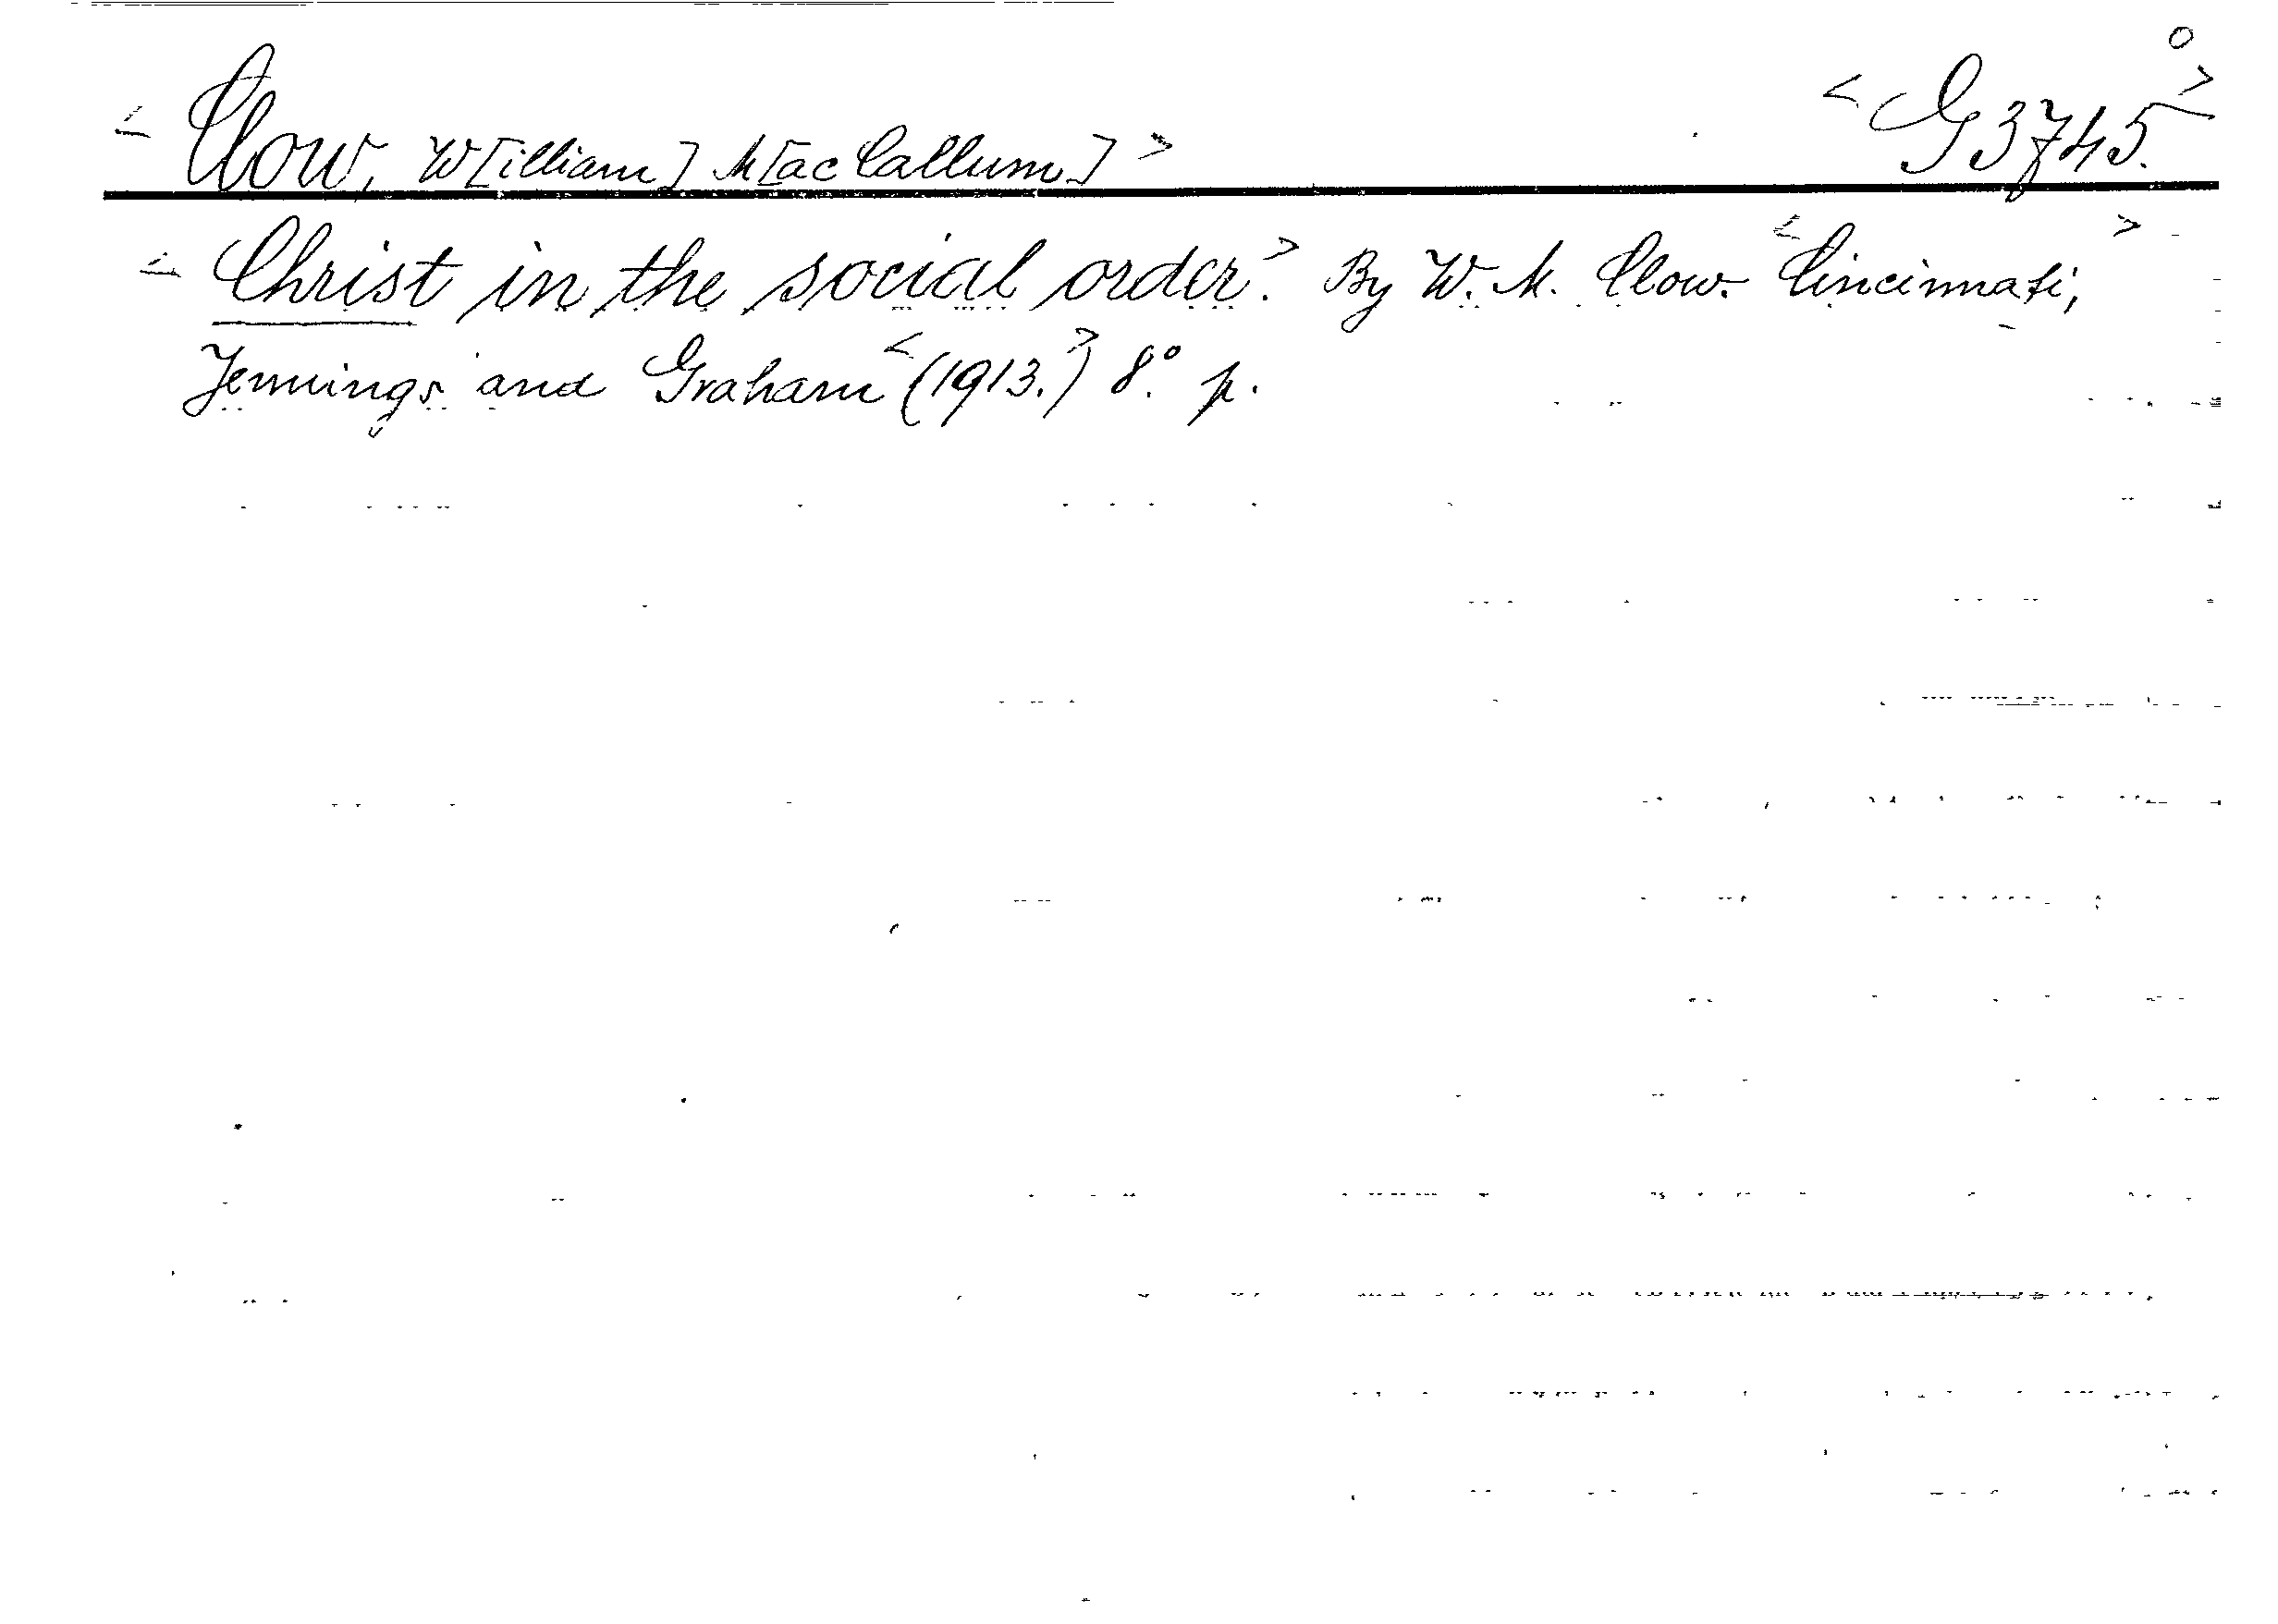 < Clow, W[illiam] M[ac Callum] > < G3745.° >
< Christ in the social order. > By W. M. Clow. < Cincinnati, >
Jennings and Graham < (1913.) > 8°. p.